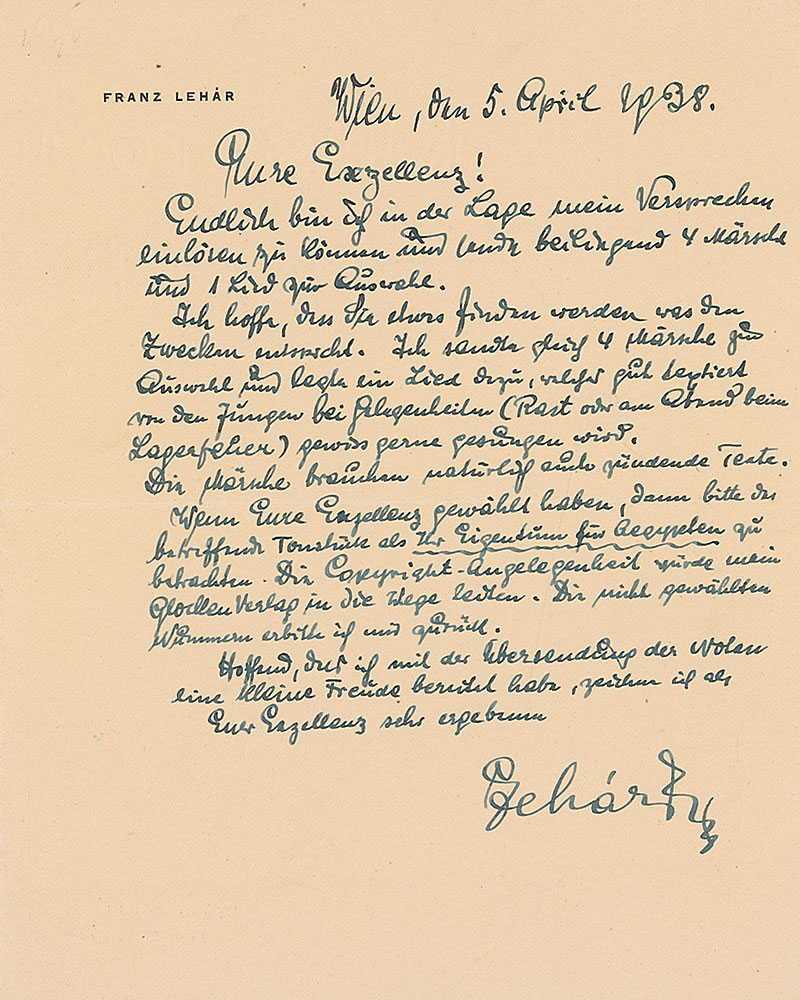 FRANZ LEHÁR
Wien, den 5. April 1938.
Eure Exzellenz!
Endlich bin ich in der Lage mein Versprechen
einlösen zu können und sende beiliegend 4 Märsche
und 1 Lied zur Auswahl.
Ich hoffe, dass Sie etwas finden werden was den
Zwecken entspricht. Ich sandte gleich 4 Märsche zur
Auswahl und legte ein Lied dazu, welches gut textiert
von den Jungen bei Gelegenheiten (Rast oder am Abend beim
Lagerfeuer) gewiss gerne gesungen wird.
Die Märsche brauchen natürlich auch zündende Texte.
Wenn Eure Exzellenz gewählt haben, dann bitte das
betreffende Tonstück als Ihr Eigentum für Aegypten zu
betrachten. Die Copyright-Angelegenheit würde mein
Glocken Verlag in die Wege leiten. Die nicht gewählten
Nummern erbitte ich mir zurück.
Hoffend, dass ich mit der Übersendung der Noten
eine kleine Freude bereitet habe, zeichne ich als
Euer Exzellenz sehr ergebener
Lehár Fr